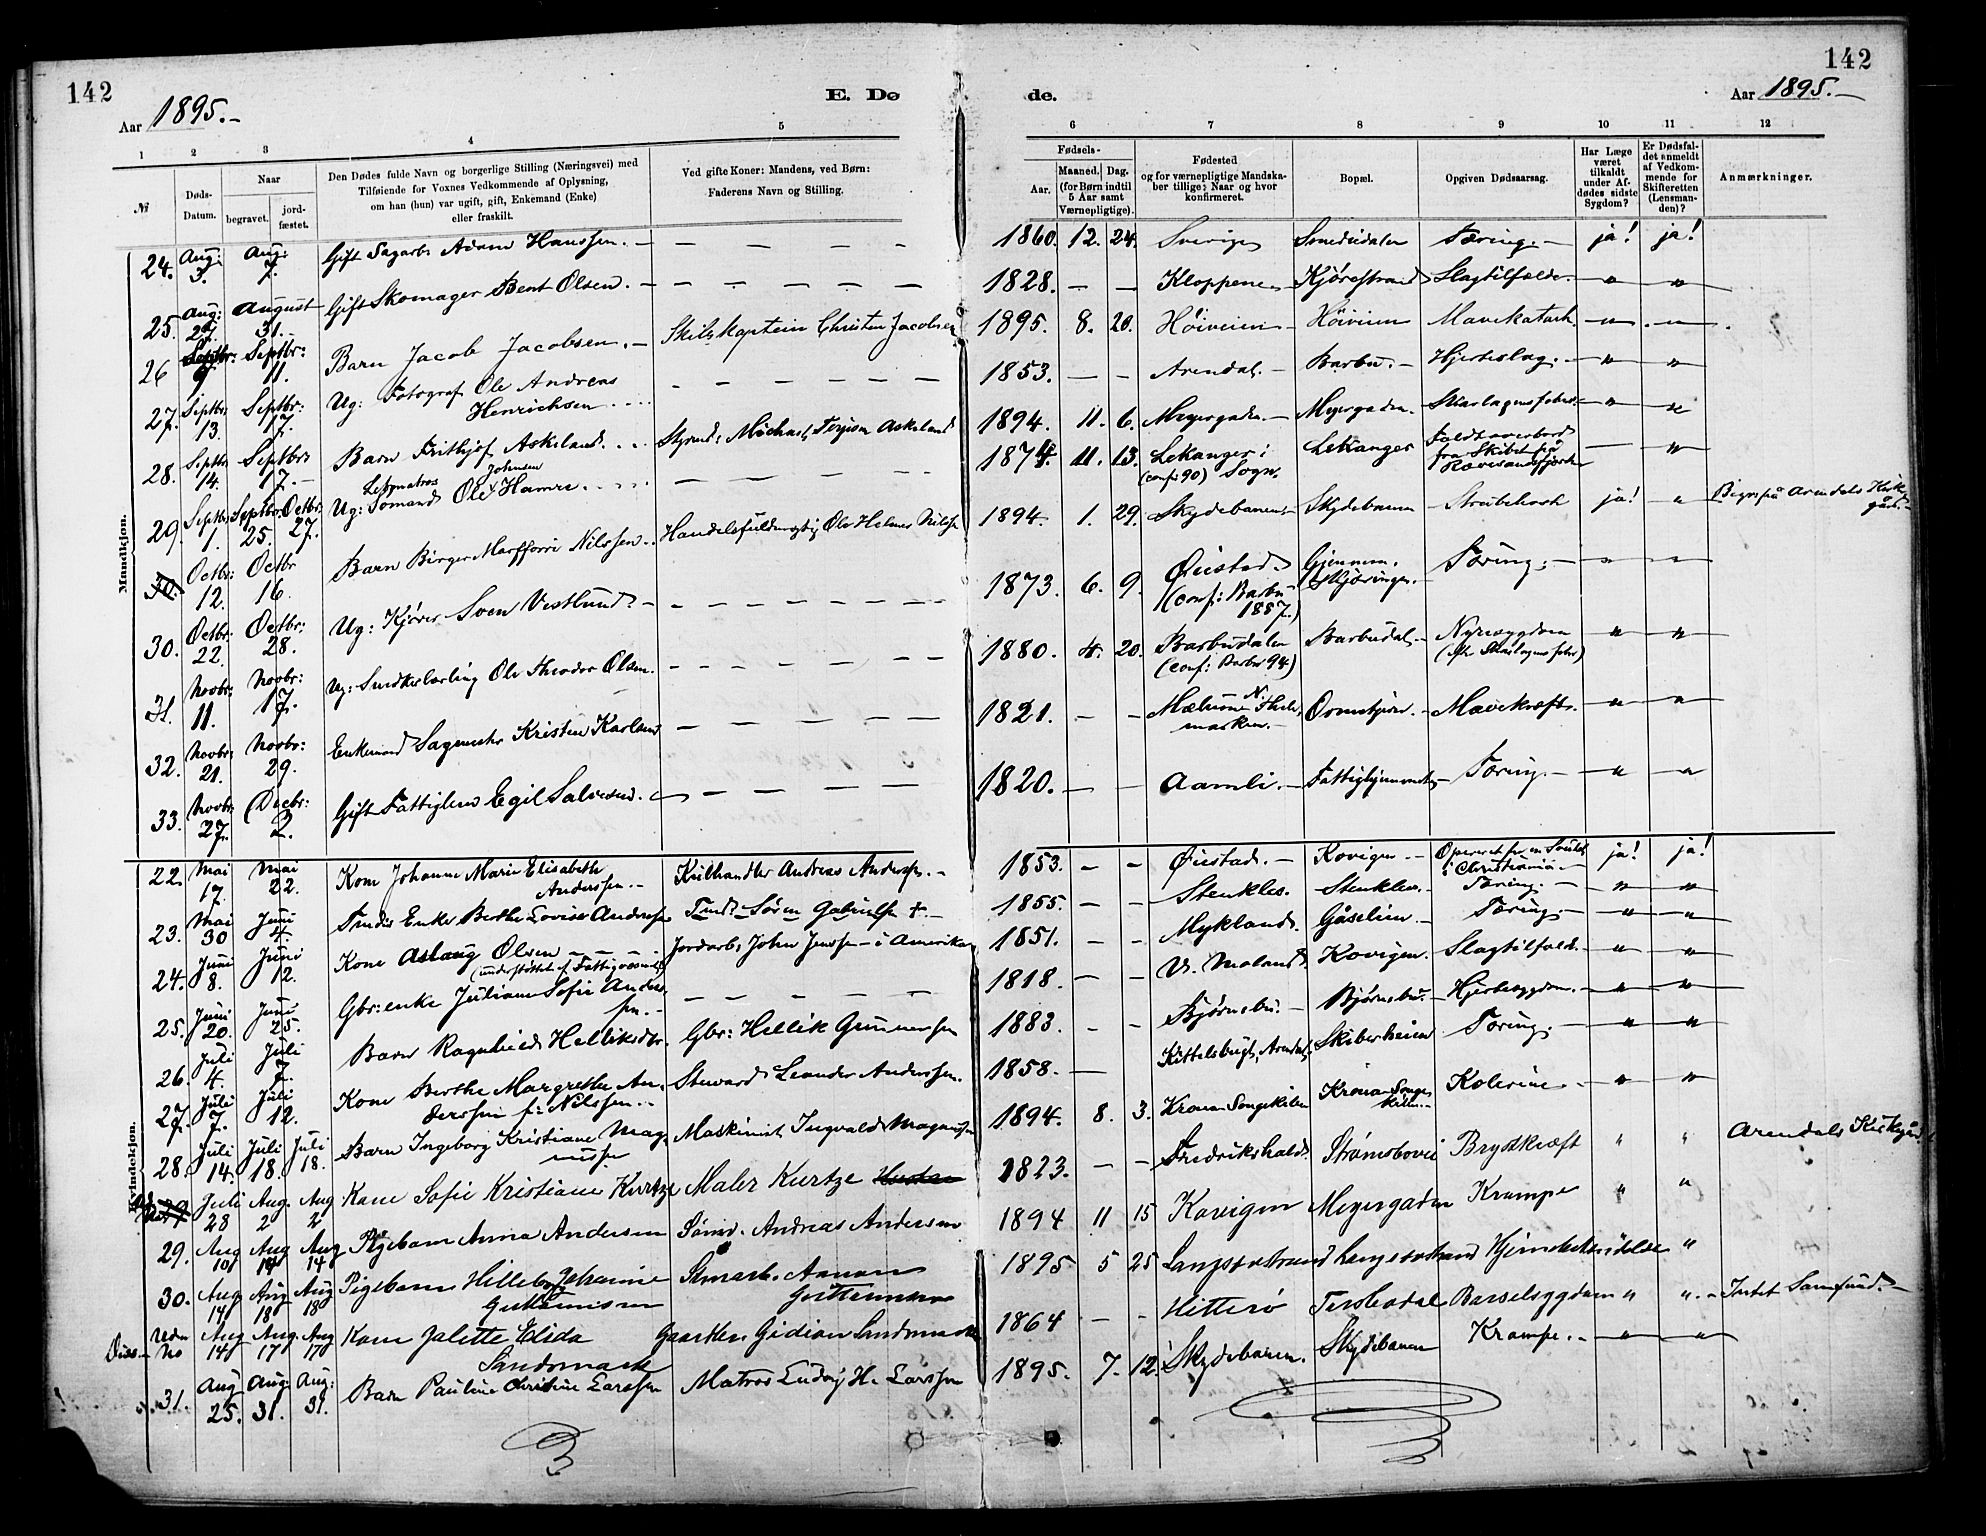 142
Aar 1895.-
E. Dø
de.
Aar 1895.-
142
1 2 3 4 5
6 7 8 9 10 11 12
№
Døds-Datum.
Naar
begravet.
jord-fæstet.
Den Dødes fulde Navn og borgerlige Stilling (Næringsvei) med
Tilføiende for Voxnes Vedkommende af Oplysning,
om han (hun) var ugift, gift, Enkemand (Enke)
eller fraskilt.
Ved gifte Koner: Mandens, ved Børn:
Faderens Navn og Stilling.
Fødsels-
Aar.
Maaned. Dag.
(for Børn indtil
5 Aar samt
Værnepligtige).
Fødested
og for værnepligtige Mandska-
ber tillige: Naar og hvor
konfirmeret.
Bopæl.
Opgiven Dødsaarsag.
Har Læge
været
tilkaldt
under Af-
dødes sidste
Sygdom?
Er Dødsfal-
det anmeldt
af Vedkom-
mende for
Skifteretten
(Lensman-
den)?
Anmærkninger.
Mandkjøn.
24. Aug: 3. Aug: 7. Gift Sagarb. Adam Hanssen. — 1860. 12. 24. Sverige Tæring. — ja! ja!
25. Aug: 27. August 31. Gift Skomager Bent Olsen. — 1828. — — Kloppene Kjørestrand Slagtilfælde. — " — "
26 Septbr: 9 Septbr: 11. Barn Jacob Jacobsen. — Skibskaptein Christen Jacobsen 1895. 8. 20. Høiveien — Høiveien Mavekatarh. — " — "
27. Septbr 13. Septbr: 17. Ug: Fotograf Ole Andreas
Henrichsen. 1853. — — Arendal. — Barbu. — Hjerteslag. — " — "
28. Septbr 14. Septbr: 17. — Barn Frithjof Askeland. Michael Terjesen Askeland 1894. 11. 6. Meyergaden. — Meyergaden. Skarlagensfeber. — " — "
29. Septbr 1. Septbr. 25. Octbr. 27. Ug: Letmatros
Sømand Ole Johnsen Hamre. — — 1874. 11. 13. Lekanger i
(conf: 90) Sogn. Lekanger Faldt overbord
fra Skibet på
— "
30. Octbr: 12. Octbr 16. Barn Birger Nilssen. Handelsfuldmægtig Ole Helmer Nilssen 1894. 1. 29. Skydebanen — Skydebanen — Strubehoste ja! — " Arendals Kirke
gård. —
30. Octbr: 22. Octbr: 28. Ug: Kjører Sven Vestlund. — 1873. 6. 9. Øiestad.
(conf: Barbu
1887.) Gjennem.
Skjæringen. — Tæring. — " — "
31. Novbr: 11. Novbr: 17. Ug: Smedkerlærling Ole Theodor Olsen. 1880. 4. 20. Barbudalen
(conf: Barbu 94) Barbudal. — Nyresygdom
(efter Skarlagensfeber) " — "
32. Novbr: 21. Novbr: 29. Enkemand Sagmester Kristen Karlsen 1821. — — N. Thele-
marken. — — Mavekræft. — " — "
33. Novbr: 27. Decbr: 2. Gift Fattiglem Egil Salvesen. 1820. — — Aamli. — Fattighjemmet Tæring. — " — "
Kvindekjøn.
22. Mai 17. Mai 22. Kone Johanne Marie Elisabeth
Anderssen. — Andreas Anderssen. — 1853. — — Øiestad. — Kovigen. — Opereret for en Svulst
i Christiania. — ja! ja!
23. Mai 30 Juni 4. Enke Berthe Lovise Andersen Søren Gabrielsen +. — 1855. — — Stenklev. — Stenklev. — Tæring. — " — "
24. Juni 8. Juni 12. Kone Aslaug Olsen — —
(understøttet af Fattigvæsenet) Jordarb: John Jenssen — i Amerika 1851. — — Mykland. Gåselien. — Tæring. — " — "
25. Juni 20. Juni 25. Gbr: enke Juliane Sofie Anders-
sen. — 1818. — — V. Moland. Kovigen. Slagtilfæld. — " — "
26. Juli 4. Juli 7. Barn Ragnhild Helliksdtr. Gbr: Hellik Gunnersen 1883. — — Bjørnsbu. — Bjørnsbu. — Hjertesygdom. — " — "
27. Juli 7. Juli 12. Kone Berthe Margrethe An-
derssen f: Nilssen. — Steward Leander Anderssen. 1858. — Kittelsbugt, Arendal. Skiberheien Tæring. — " — "
28. Juli 14. Juli 18. Juli 18. Barn Ingeborg Kristiane Mag-
nussen Maskinist Ingvald Magnussen 1894. 8. 3. Krona Songekilen Krona Songe-
kilen. — Kolerine. — " — "
29 Juli 28 Aug. 2 Aug 2 Kone Sofie Kristiane Kurtze Maler Kurtze 1823. — — Fredrikshald. Strømsbovei Brystkræft " " Arendals Kirkegård
29. Aug 10 Aug 14 Aug 14 Pigebarn Anna Andersen Sømd. Andreas Andersen 1894 11 15 Kovigen Meyergaden Krampe " "
30. Aug 14 Aug 18 Aug 18 Pigebarn Johanne
Guttormsen Aanon
Guttormsen 1895 5 25 Langsæstrand Langsæstrand "
Diss. — Uden No Aug 14 Aug. 17 Aug 17 Kone Jalette Elida
Sandsmark Gidion Sandsmark 1864 — — Hitterø Barselsygdom " ". — Intet Samfund. —
31. Aug 25. Aug: 31. Aug: 31. Barn Pauline Christine Larssen Matros Ludvig H. Larssen 1895. 7. 12. Skydebanen. Skydebanen Krampe. — " — "